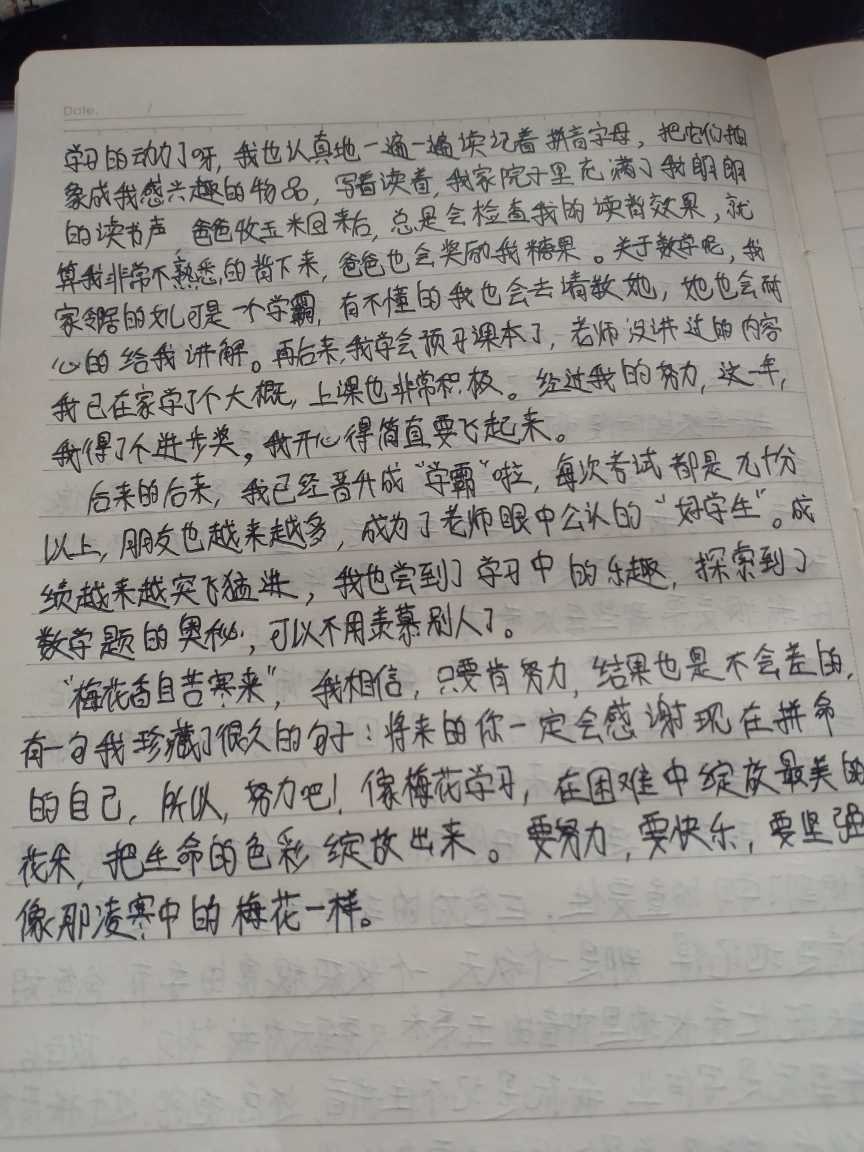 Date.      /
学习的动力了呀，我也认真地一遍一遍读记着拼音字母，把它们抽
象成我感兴趣的物品，写着读着，我家院子里充满了我朗朗
的读书声，爸爸收玉米回来后，总是会检查我的读背效果，就
算我非常不熟悉的背下来，爸爸也会奖励我糖果。关于数学呢，我
家邻居的女儿可是一个学霸，有不懂的我也会去请教她，她也会耐
心的给我讲解。再后来，我学会预习课本了，老师没讲过的内容
我已在家学了个大概，上课也非常积极。经过我的努力，这一年，
我得了个进步奖。我开心得简直要飞起来。
后来的后来，我已经晋升成“学霸”啦，每次考试都是九十分
以上，朋友也越来越多，成为了老师眼中公认的“好学生”。成
绩越来越突飞猛进，我也尝到了学习中的乐趣，探索到了
数学题的奥秘，可以不用羡慕别人了。
“梅花香自苦寒来”，我相信，只要肯努力，结果也是不会差的，
有一句我珍藏了很久的句子：将来的你一定会感谢现在拼命
的自己，所以，努力吧！像梅花学习，在困难中绽放最美的
花朵，把生命的色彩绽放出来。要努力，要快乐，要坚强
像那凌寒中的梅花一样。